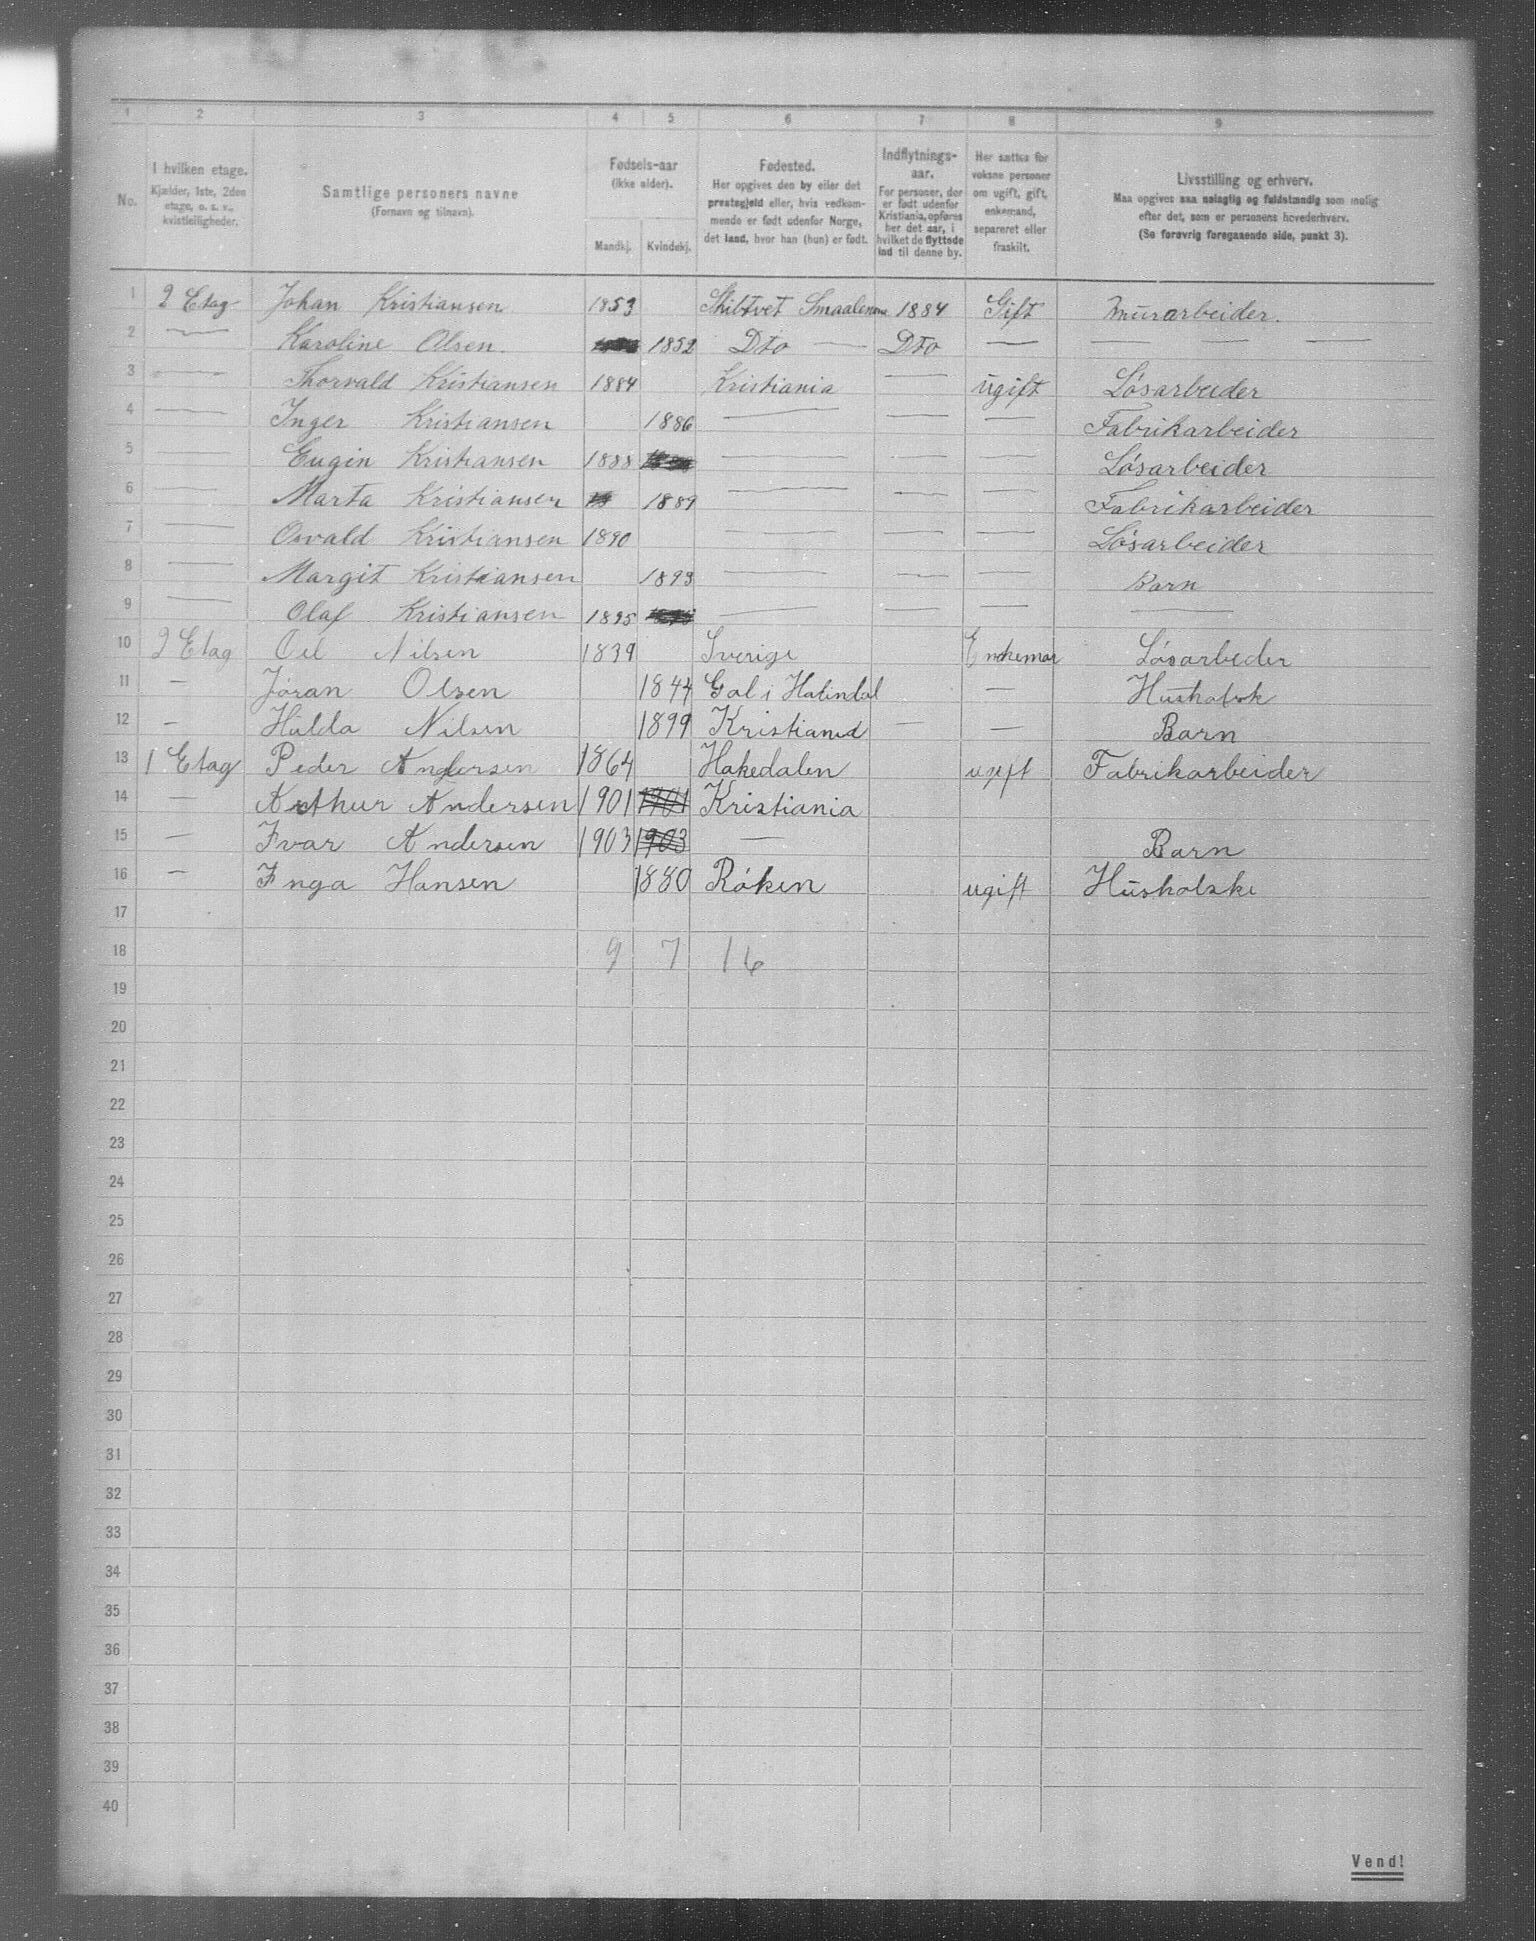 1 2 3 4 5 6 7 8 9
No.
I hvilken etage.
Kjælder, 1ste, 2den
etage, o. s. v.,
kvistleiligheder.
Samtlige personers navne
(Fornavn og tilnavn).
Fødsels-aar
(ikke alder).
Mandkj. Kvindekj.
Fødested.
Her opgives den by eller det
prestegjeld eller, hvis vedkom-
mende er født udenfor Norge,
det land, hvor han (hun) er født.
Indflytnings-
aar.
For personer, der
er født udenfor
Kristiania, opføres
her det aar, i
hvilket de flyttede
ind til denne by.
Her sættes for
voksne personer
om ugift, gift,
enkemand,
separeret eller
fraskilt.
Livsstilling og erhverv.
Maa opgives saa nøiagtig og fuldstændig som mulig
efter det, som er personens hovederhverv.
(Se forøvrig foregaaende side, punkt 3).
1 2 Etag Johan Kristiansen 1853 Skibtvet Smaalenene 1884 Gift Murarbeider.
2 — Karoline Olsen. 1852 Dto — Dto — — — —
3 — Thorvald Kristiansen 1884 Kristiania — ugift Løsarbeider
4 — Inger Kristiansen 1886 — — — Fabrikarbeider
5 — Eugin Kristiansen 1888 — — — Løsarbeider
6 — Marta Kristiansen 1889 — — — Fabrikarbeider
7 — Osvald Kristiansen 1890 — — — Løsarbeider
8 — Margit Kristiansen 1893 — — — Barn
9 — Olaf Kristiansen 1895 — — — —
10 2 Etag Nilsen 1839 Sverige Enkeman Løsarbeder
11 — Jøran Olsen 1844 Gol i Halindal —
12 — Hulda Nilsen 1899 Kristiania — — Barn
13 1 Etag Peder Andersen 1864 Hakedalen ugift Fabrikarbeider
14 — Arthur Andersen 1901 1901 Kristiania
15 — Ivar Andersen 1903 1903 — Barn
16 — Inga Hansen 1880 Røken ugift
17
18 9 7 16
19
20
21
22
23
24
25
26
27
28
29
30
31
32
33
34
35
36
37
38
39
40
Vend!